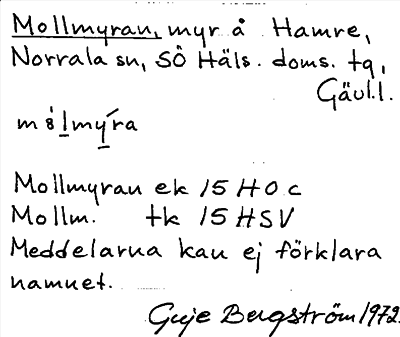 Mollmyran, myr å Hamre,
Norrala sn, SÖ Häls. doms. tq,
Gävl.l.
mo̊lmýra
Mollmyran ek 15 H 0 c
Mollm. tk 15 H SV
Meddelarna kan ej förklara
namnet.
Guje Bergström 1972.